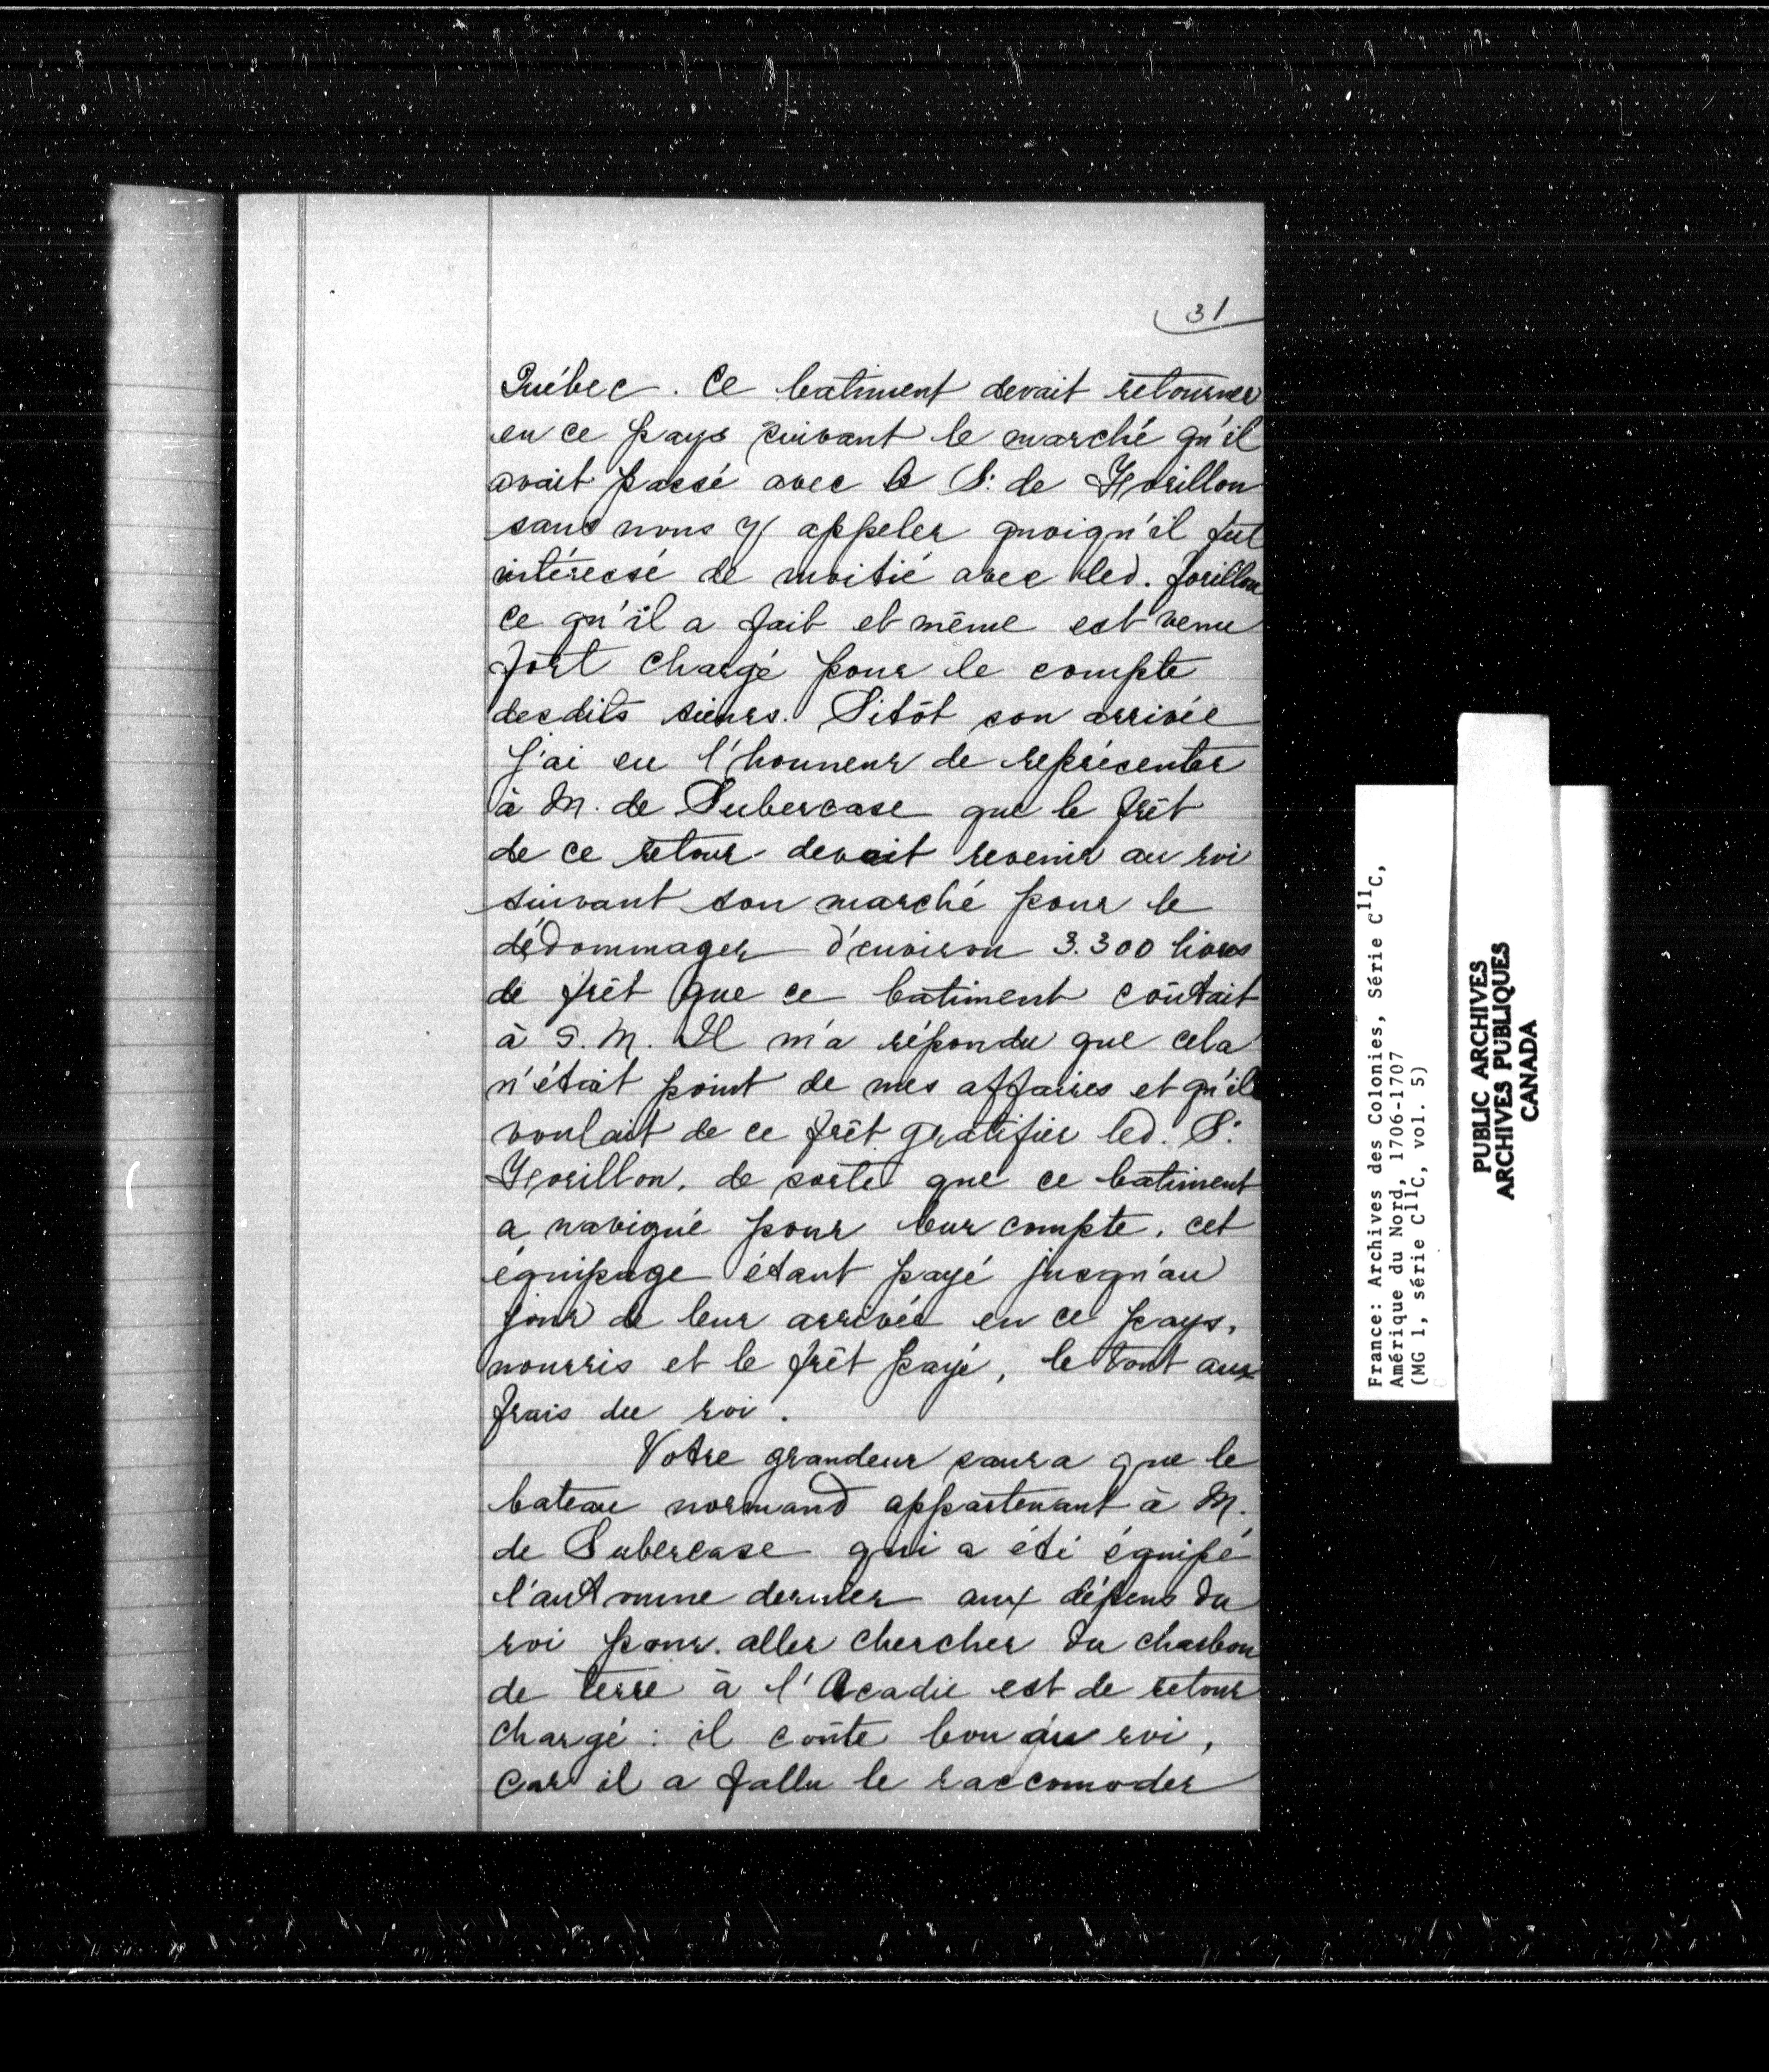 31
Québec. Ce batiment devait retourner
en ce pays suivant le marché qu'il
avait passé avec le S: de Horillon
sans nous y appeler quoiqu'il fut
intéressé de moitié avec led. forillon
ce qu'il a fait et même est venu
fort chargé pour le compte
desdits sieurs. Sitôt son arrivée
j'ai eu l'honneur de représenter
à M. de Subercase que le frêt
de ce retour devait revenir au roi
suivant son marché pour le
dédommager d'environ 3.300 livres
de frêt que ce batiment coûtait
à S. M. Il m'a répondu que cela
n'était point de mes affaires et qu'il
voulait de ce frêt gratifier led. S:
Horillon, de sorte que ce batiment
a navigué pour leur compte, cet
équipage étant payé jusqu'au
jour de leur arrivée en ce pays,
nourris et le frêt payé, le tout aux
frais du roi.
Votre grandeur saura que le
bateau normand appartenant à M.
de Subercase qui a été équipé
l'automne dernier aux dépens du
roi pour aller chercher du charbon
de terre à l'Acadie est de retour
chargé : il coûte bon au roi,
car il a fallu le raccomoder
France: Archives des Colonies, Série C11C,
Amérique du Nord, 1706-1707
(MG 1, série C11C, vol. 5)
PUBLIC ARCHIVES
ARCHIVES PUBLIQUES
CANADA